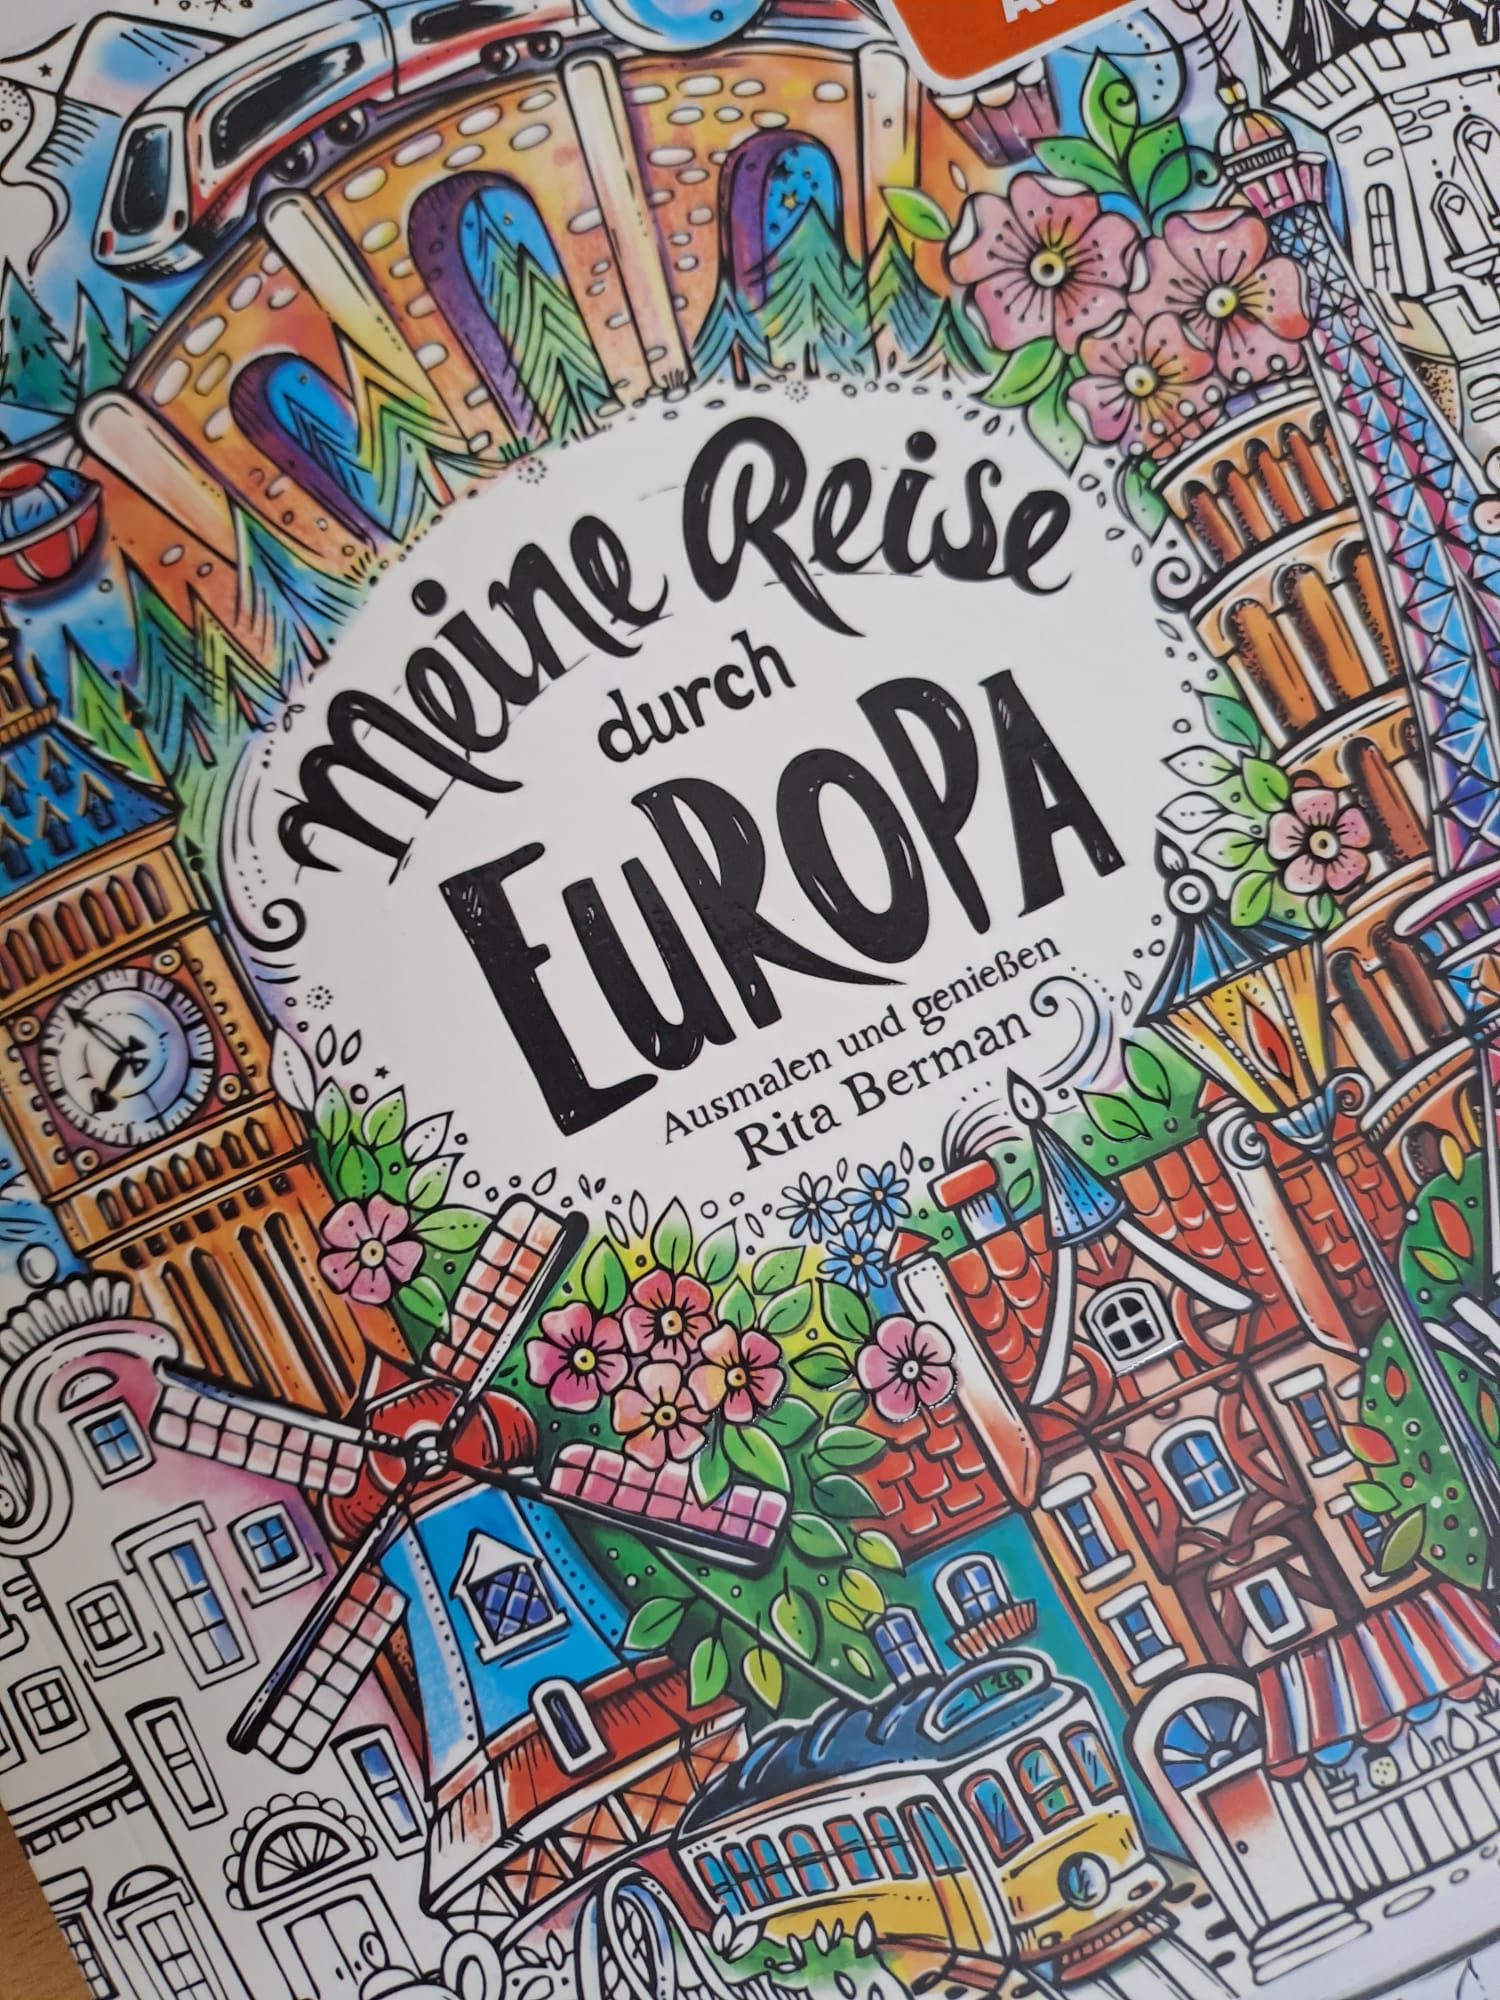 Meine Reise
durch
EUROPA
Ausmalen und genießen
Rita Berman